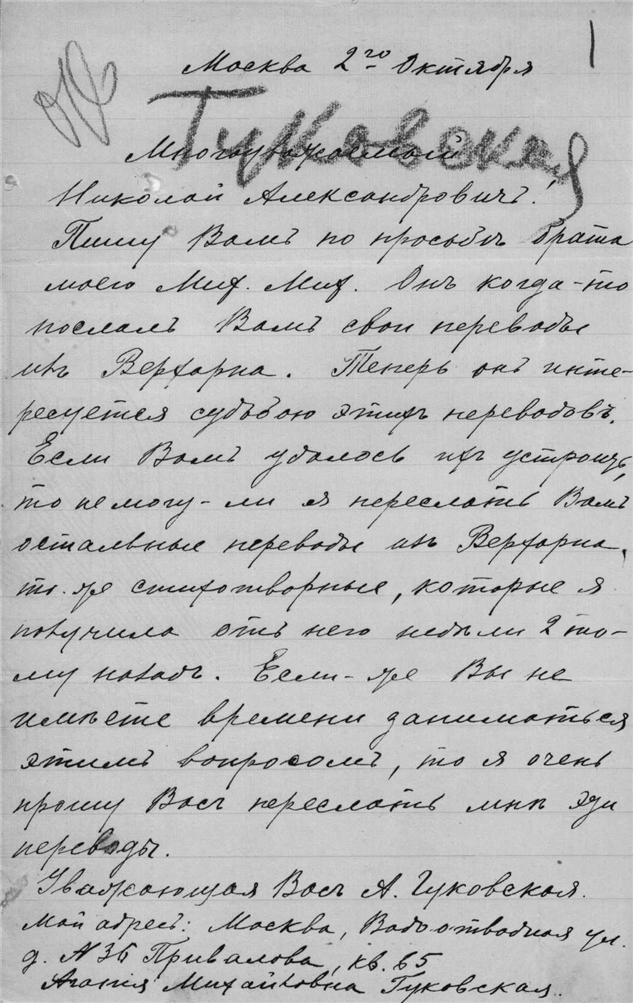 1
Москва 2го Октября
Гуковская
Многоуважаемый
Николай Александровичъ!
Пишу Вамъ по просьбѣ брата
моего Мих. Мих. Онъ когда-то
послалъ Вамъ свои переводы
изъ Верхарна. Теперь онъ инте-
ресуется судьбою этихъ переводовъ.
Если Вамъ удалось ихъ устроить,
то не могу-ли я переслать Вамъ
остальные переводы изъ Верхарна,
то-же стихотворные, которые я
получила отъ него недѣли 2 то-
му назадъ. Если-же Вы не
имѣете времени заниматься
этимъ вопросомъ, то я очень
прошу Васъ переслать мнѣ эти
переводы.
Уважающая Васъ А. Гуковская.
Мой адресъ: Москва, Водоотводная ул.
д. №36 Привалова, кв. 65
Агапія Михайловна Гуковская.